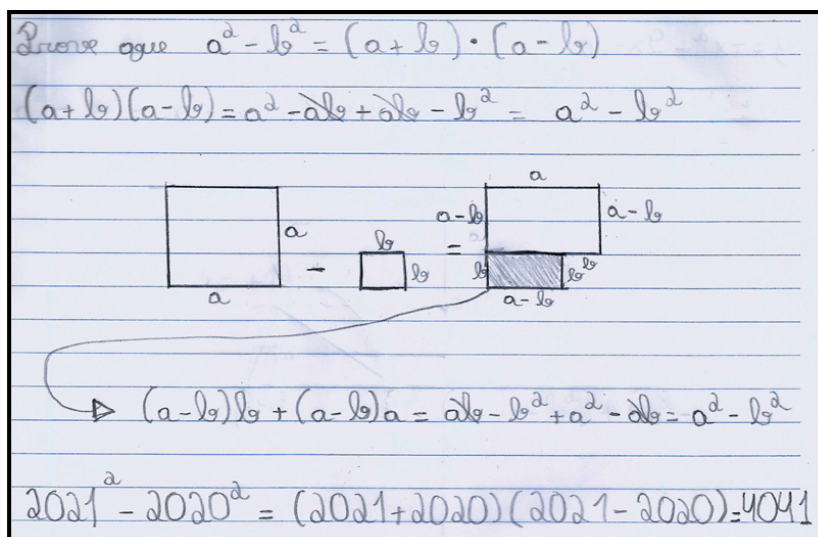 Prove que a² - b² = (a + b) · (a - b)
(a+b)(a-b) = a² - ab + ab - b² = a² - b²
a
a
-
b
b
=
a
a-b
a-b
b
b
b
a-b
(a-b)b + (a-b)a = ab - b² + a² - ab = a² - b²
2021² - 2020² = (2021+2020)(2021-2020) = 4041